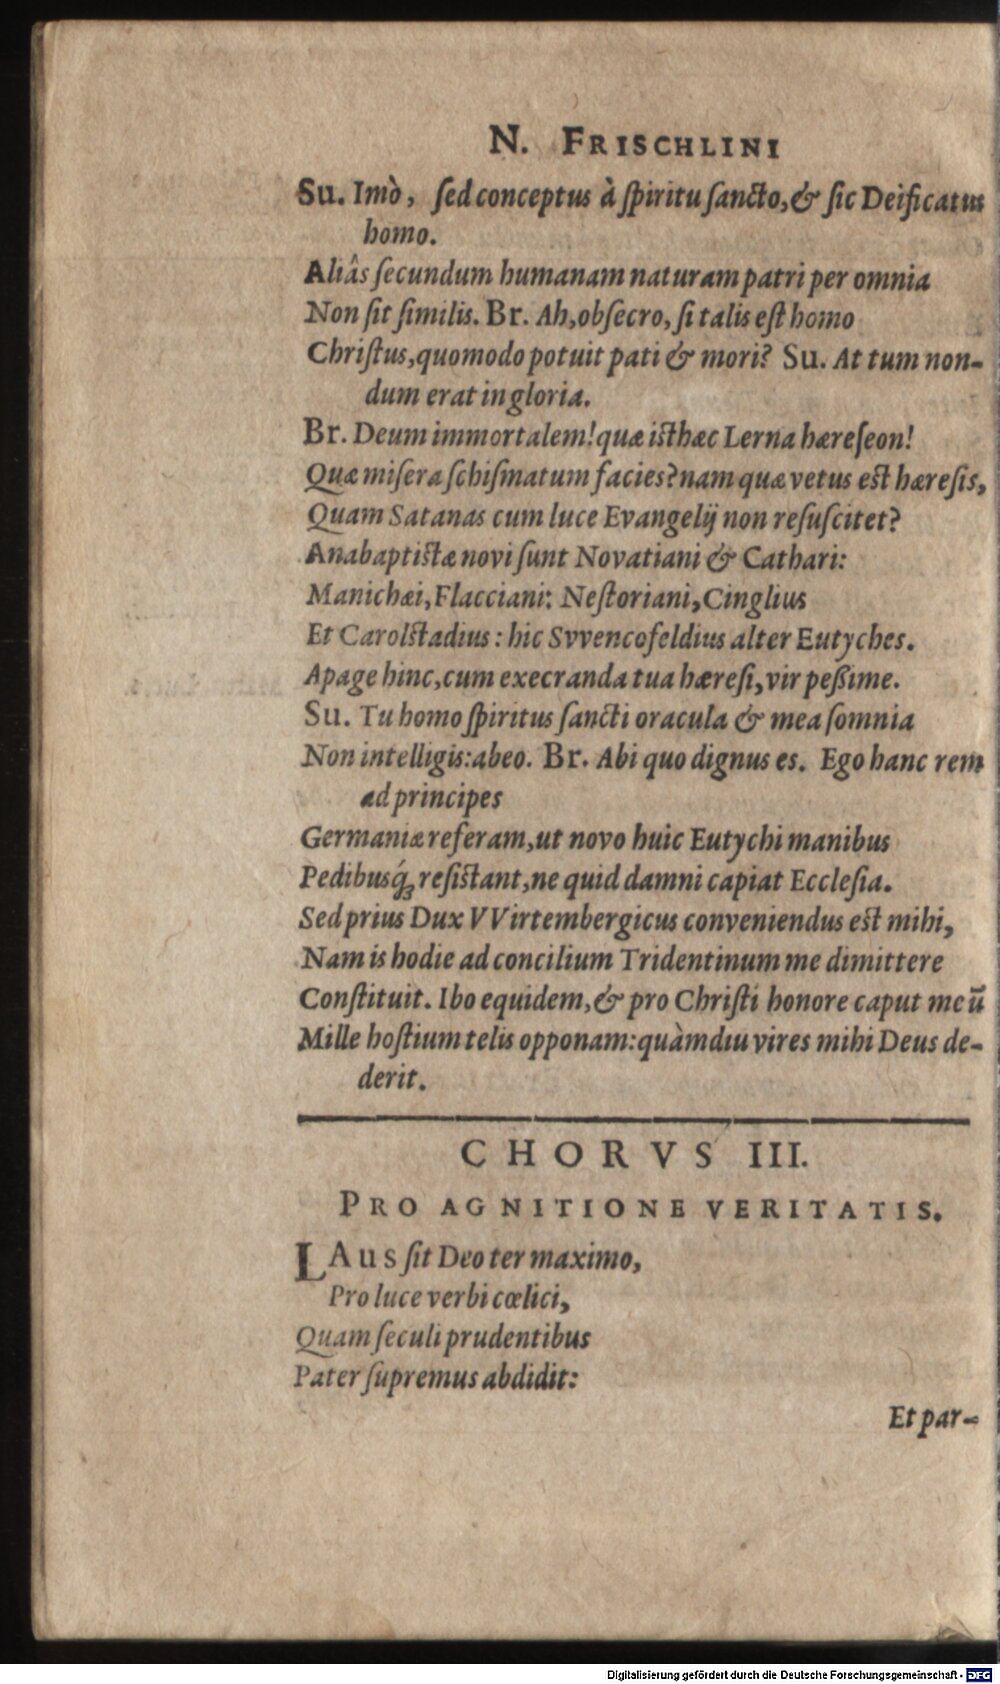 N. FRISCHLINI
Su. Imò, ſed conceptus à ſpiritu ſancto, & ſic Deificatus
homo.
Aliâs ſecundum humanam naturam patri per omnia
Non ſit ſimilis. Br. Ah, obſecro, ſi talis eſt homo
Chriſtus, quomodo potuit pati & mori? Su. At tum non-
dum erat in gloria.
Br. Deum immortalem! quæ iſthæc Lerna hæreſeon!
Quæ miſera ſchiſmatum facies? nam quæ vetus eſt hæreſis,
Quam Satanas cum luce Evangelij non reſuſcitet?
Anabaptiſtæ novi ſunt Novatiani & Cathari:
Manichæi, Flacciani: Neſtoriani, Cinglius
Et Carolſtadius: hic Svvencofeldius alter Eutyches.
Apage hinc, cum execranda tua hæreſi, vir peßime.
Su. Tu homo ſpiritus ſancti oracula & mea ſomnia
Non intelligis: abeo. Br. Abi quo dignus es. Ego hanc rem
ad principes
Germaniæ referam, ut novo huic Eutychi manibus
Pedibusq́; reſiſtant, ne quid damni capiat Eccleſia.
Sed prius Dux VVirtembergicus conveniendus eſt mihi,
Nam is hodie ad concilium Tridentinum me dimittere
Conſtituit. Ibo equidem, & pro Chriſti honore caput meū
Mille hoſtium telis opponam: quàmdiu vires mihi Deus de-
derit.
CHORVS III.
PRO AGNITIONE VERITATIS.
LAus ſit Deo ter maximo,
Pro luce verbi cœlici,
Quam ſeculi prudentibus
Pater ſupremus abdidit:
Et par-
Digitalisierung gefördert durch die Deutsche Forschungsgemeinschaft - DFG